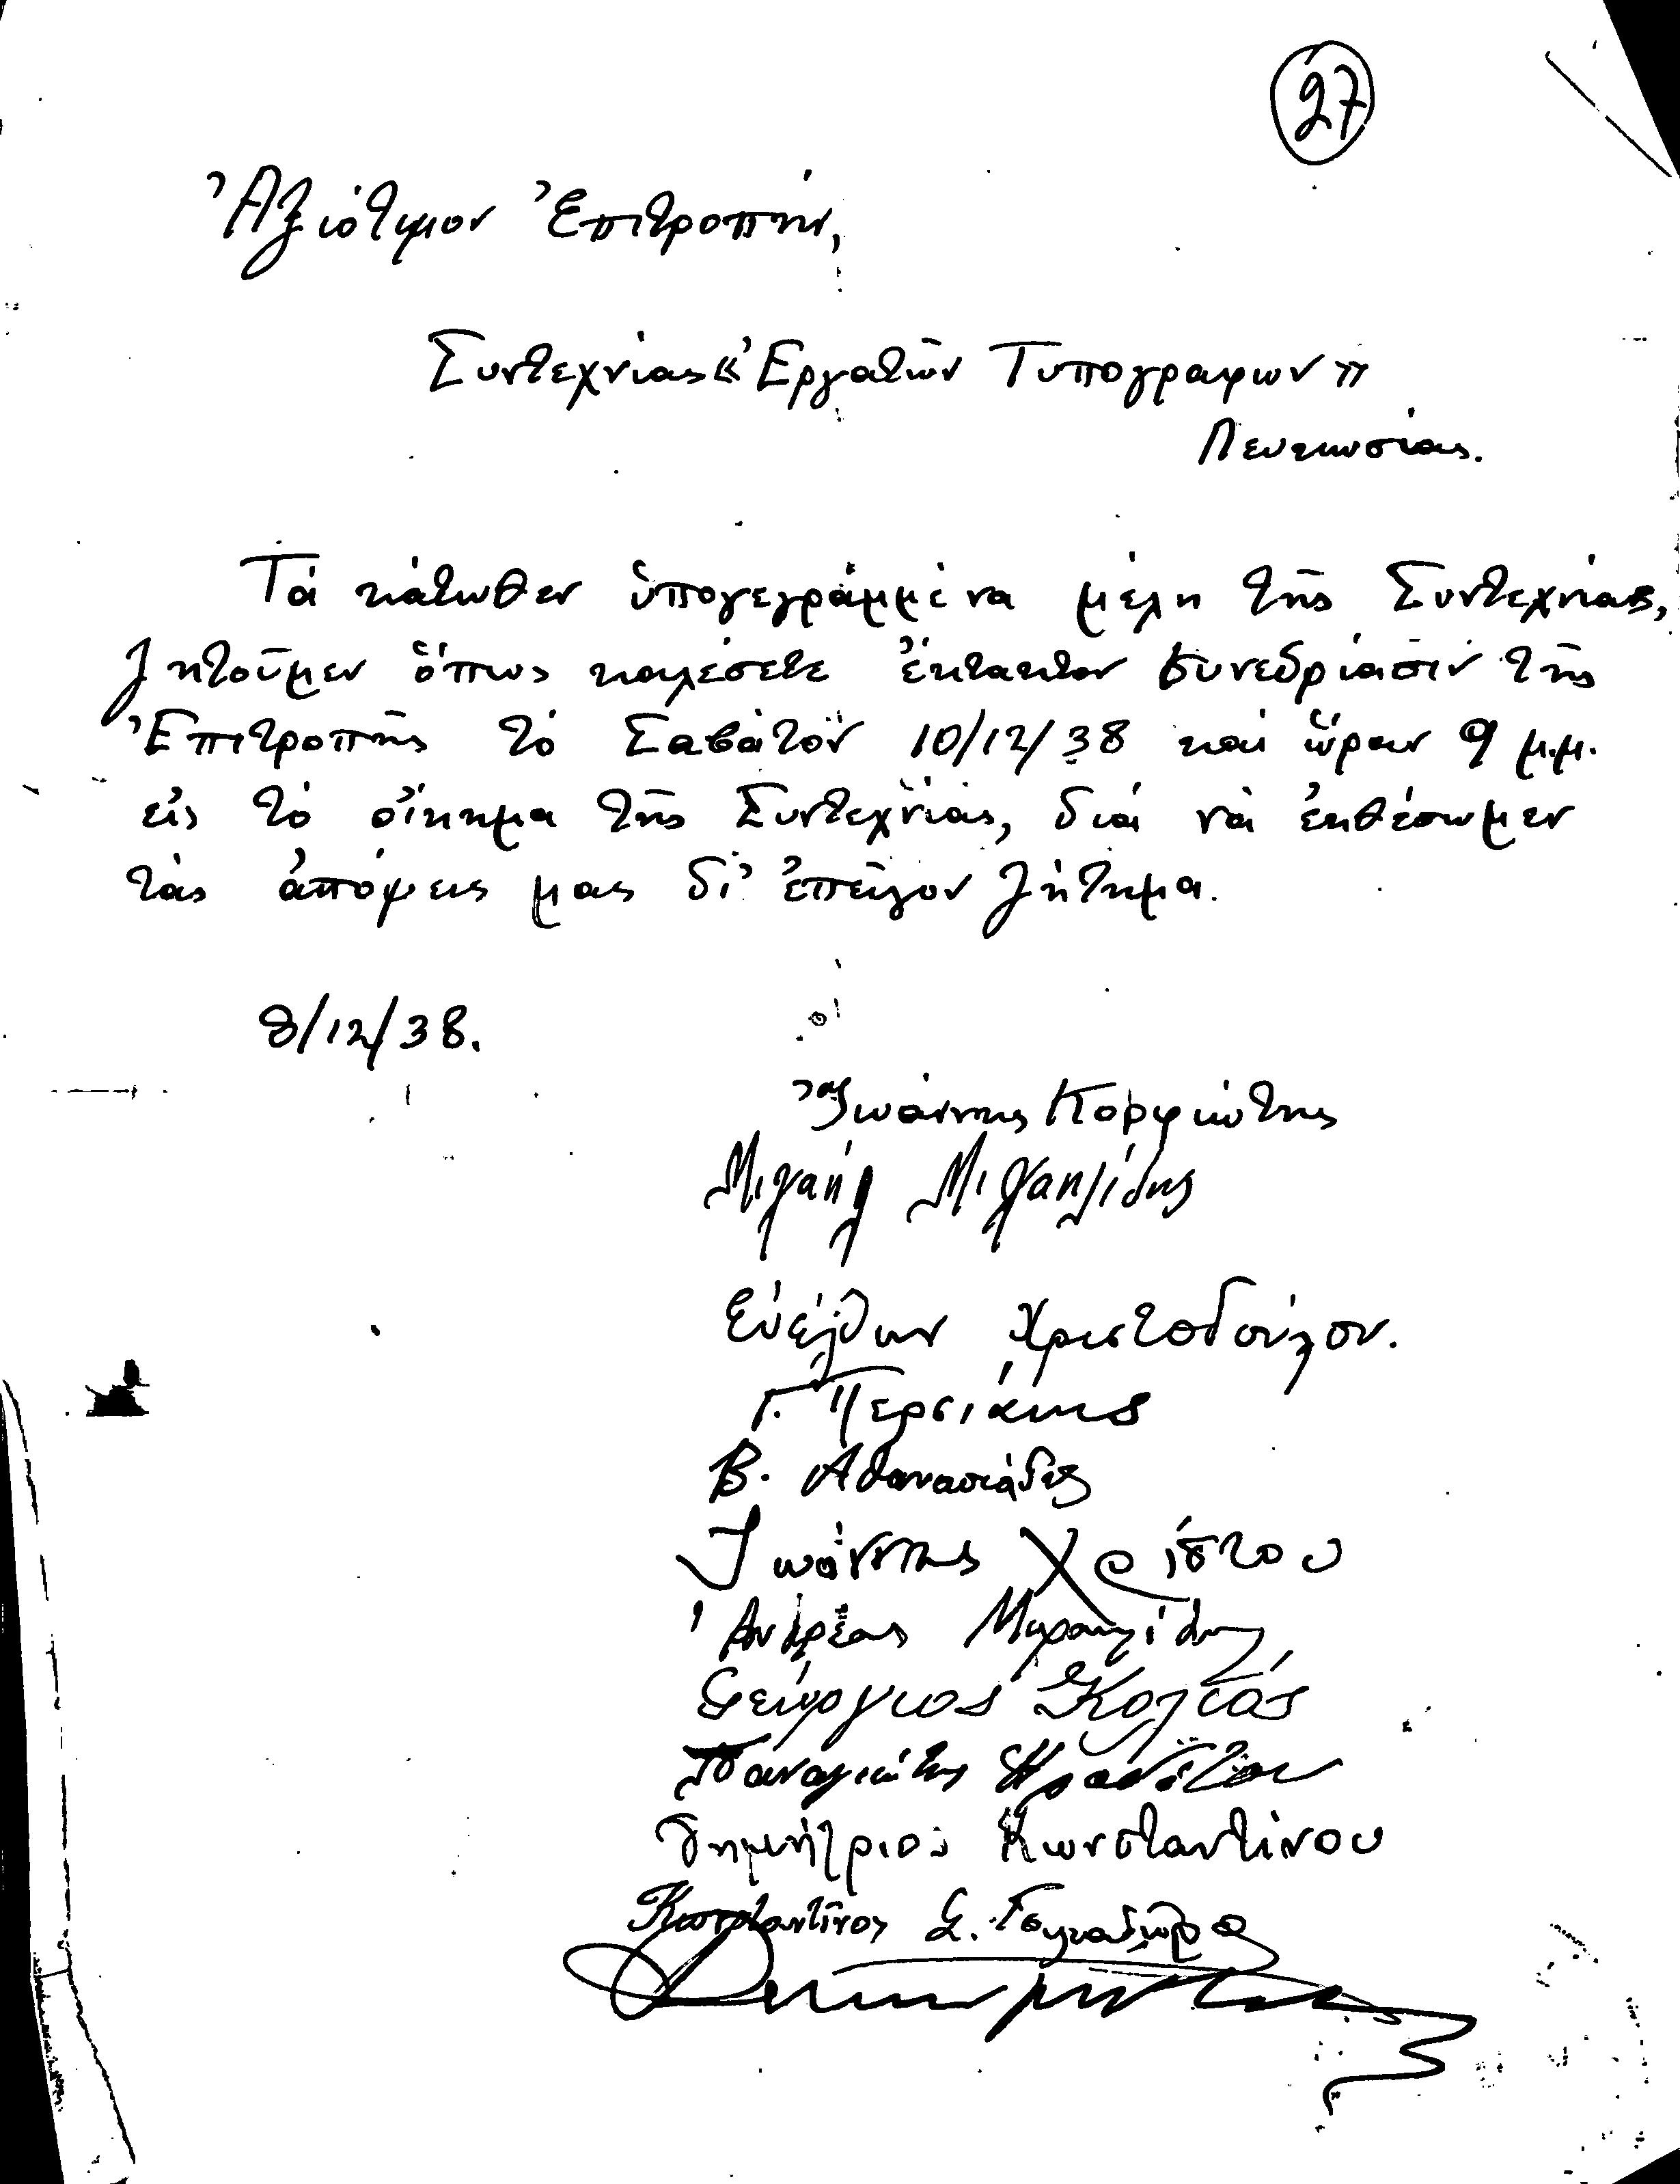 27
Ἀξιότιμον Ἐπιτροπήν,
Συντεχνίας «Ἐργατῶν Τυπογράφων»
Λευκωσίας.
Τά κάτωθεν ὑπογεγραμμένα μέλη τῆς Συντεχνίας,
ζητοῦμεν ὅπως καλέσετε ἔκτακτον συνεδρίασιν τῆς
Ἐπιτροπῆς τό Σαβάτον 10/12/38 καί ὥραν 9 μ.μ.
εἰς τό οἴκημα τῆς Συντεχνίας, διά νά ἐκθέσωμεν
τάς ἀπόψεις μας δι' ἐπεῖγον ζήτημα.
8/12/38.
Ἰωάννης Κορφιώτης
Μιχαήλ Μιχαηλίδης
Εὐέλθων Χριστοδούλου.
Γ. Περσιάνης
Β. Αθανασιάδης
Ιωάννης Χρίστου
Ἀνδρέας Μιχαηλίδης
Γεώργιος Κολιάς
Παναγιώτης
Δημήτριος Κωνσταντίνου
Κωνσταντῖνος